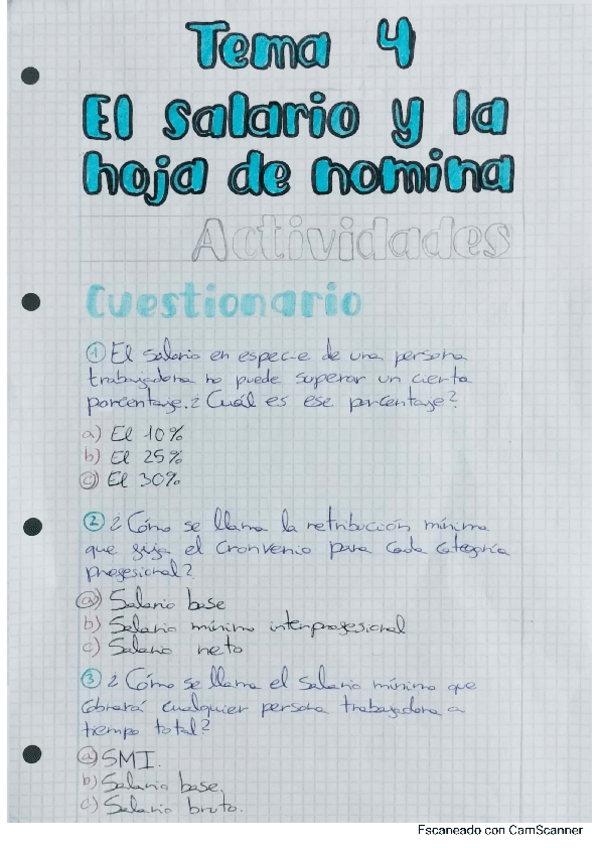 Tema 4
El salario y la
hoja de nomina
Actividades
Cuestionario
① El salario en especie de una persona
trabajadora no puede superar un cierto
porcentaje. ¿Cuál es ese porcentaje?
a) El 10%
b) El 25%
c) El 30%
② ¿Cómo se llama la retribución mínima
que fija el Cronvenio para cada categoría
profesional?
a) Salario base
b) Salario mínimo interprofesional
c) Salario neto
③ ¿Cómo se llama el salario mínimo que
cobrará cualquier persona trabajadora a
tiempo total?
a) SMI.
b) Salario base.
c) Salario bruto.
Escaneado con CamScanner